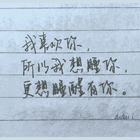 我喜欢你，
所以我想睡你，
更想睡醒有你。